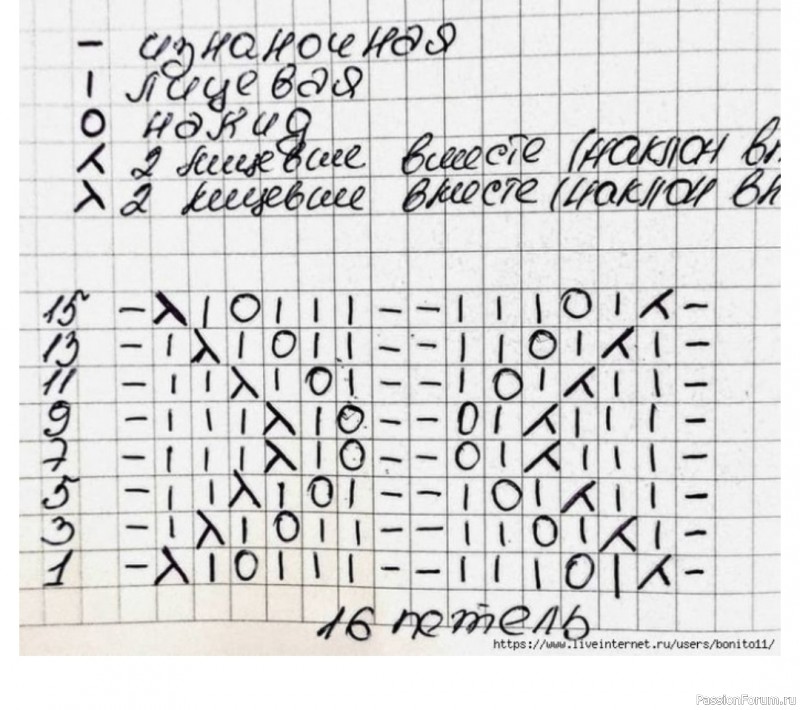 – изнаночная
| лицевая
O накид
⅄ 2 лицевые вместе (наклон
λ 2 лицевые вместе (наклон
15 – λ | O | | | – – | | | O | ⅄ –
13 – | λ | O | | – – | | O | ⅄ | –
11 – | | λ | O | – – | O | ⅄ | | –
9 – | | | λ | O – – O | ⅄ | | | –
7 – | | | λ | O – – O | ⅄ | | | –
5 – | | λ | O | – – | O | ⅄ | | –
3 – | λ | O | | – – | | O | ⅄ | –
1 – λ | O | | | – – | | | O | ⅄ –
16 петель
https://www.liveinternet.ru/users/bonito11/
PassionForum.ru